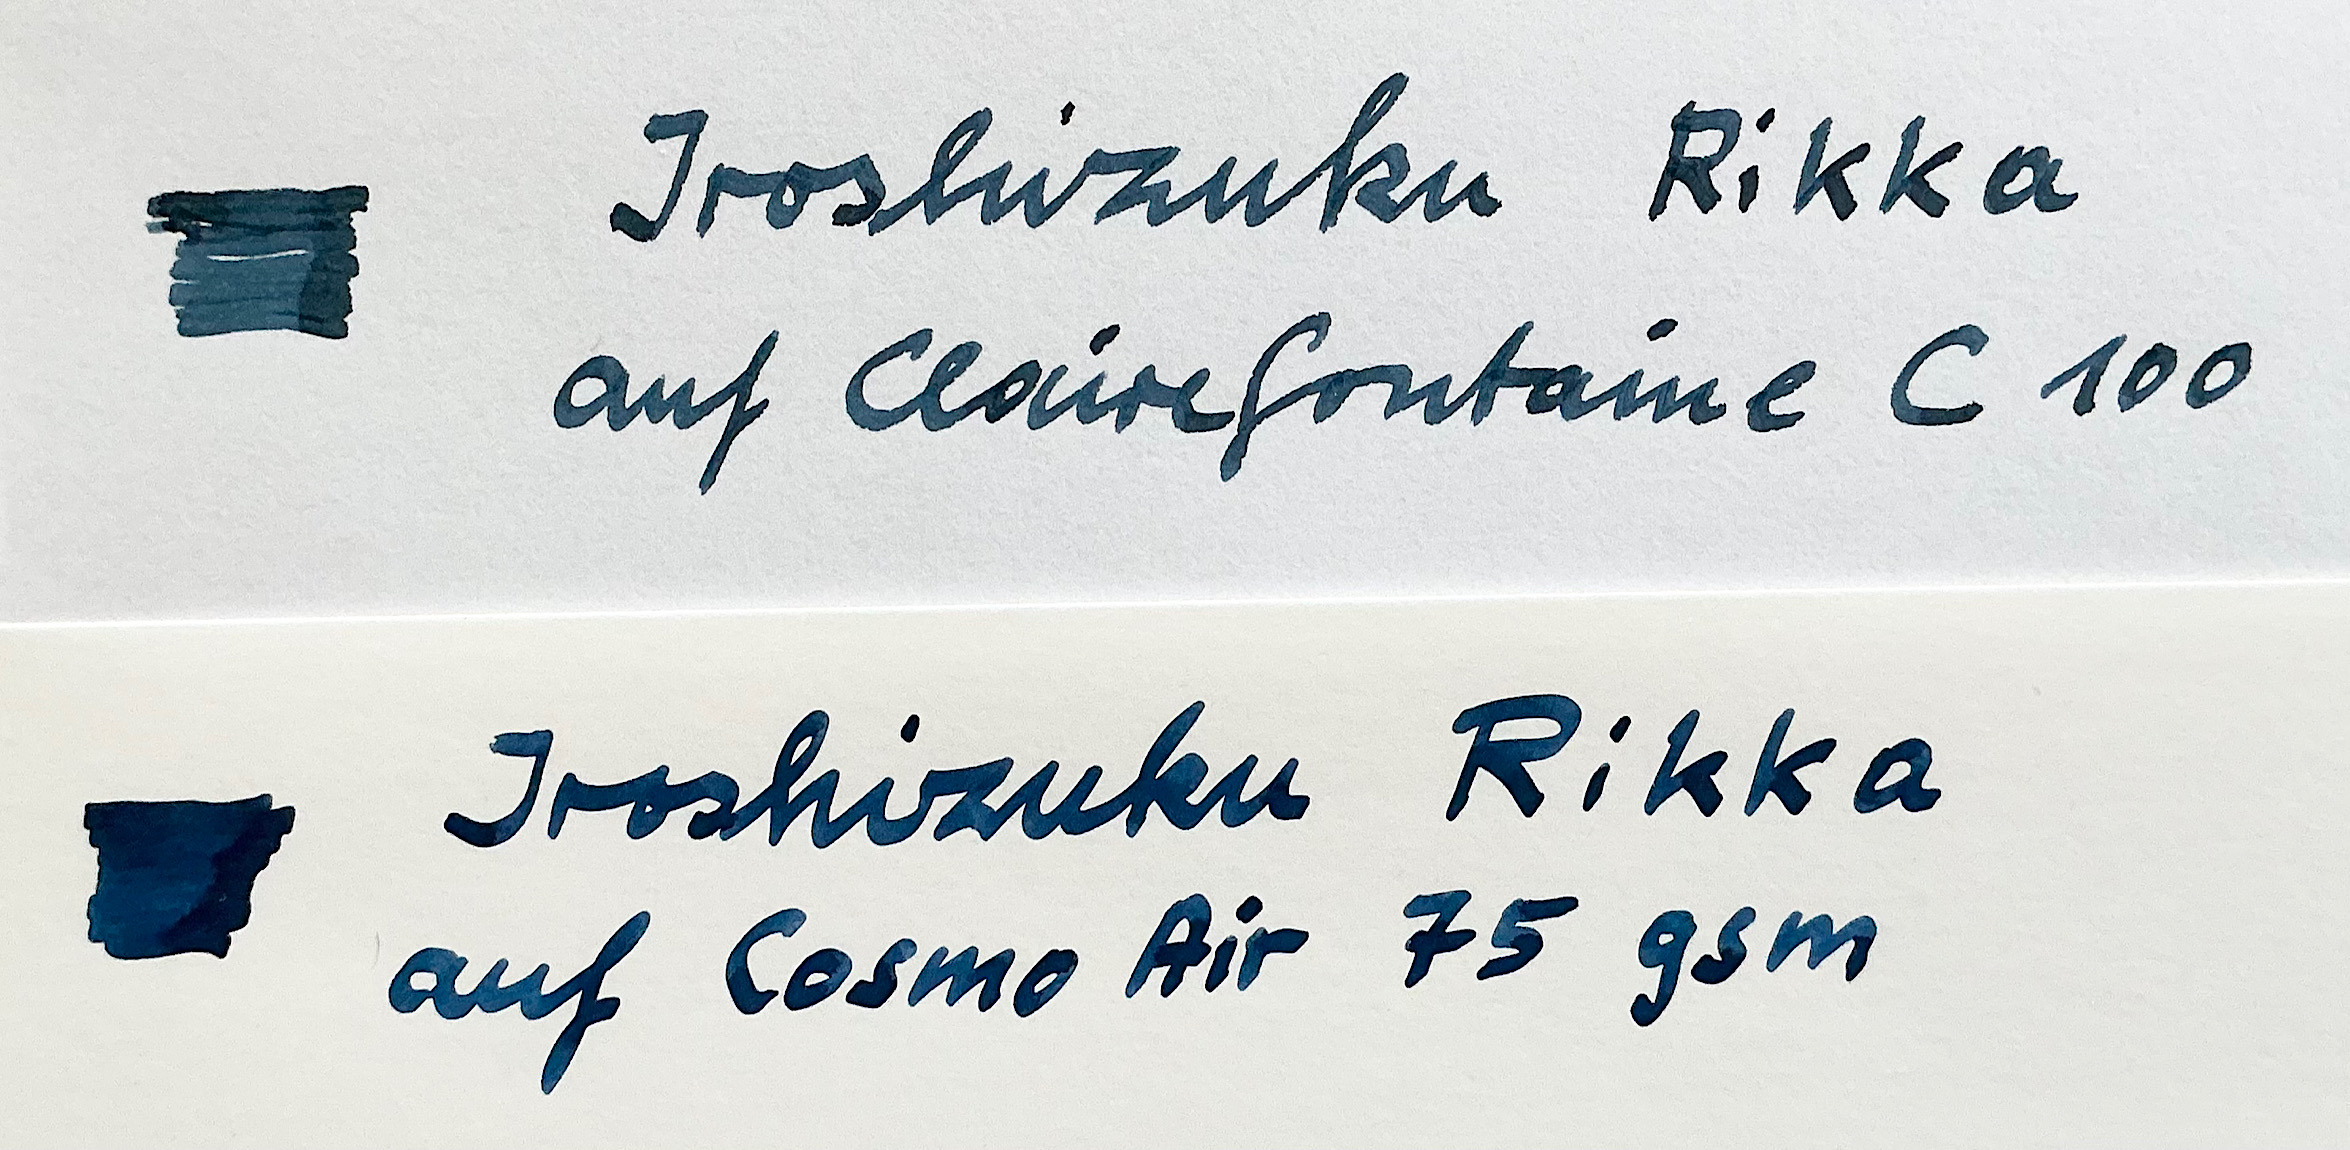 Iroshizuku Rikka
auf Clairefontaine C 100
Iroshizuku Rikka
auf Cosmo Air 75 gsm